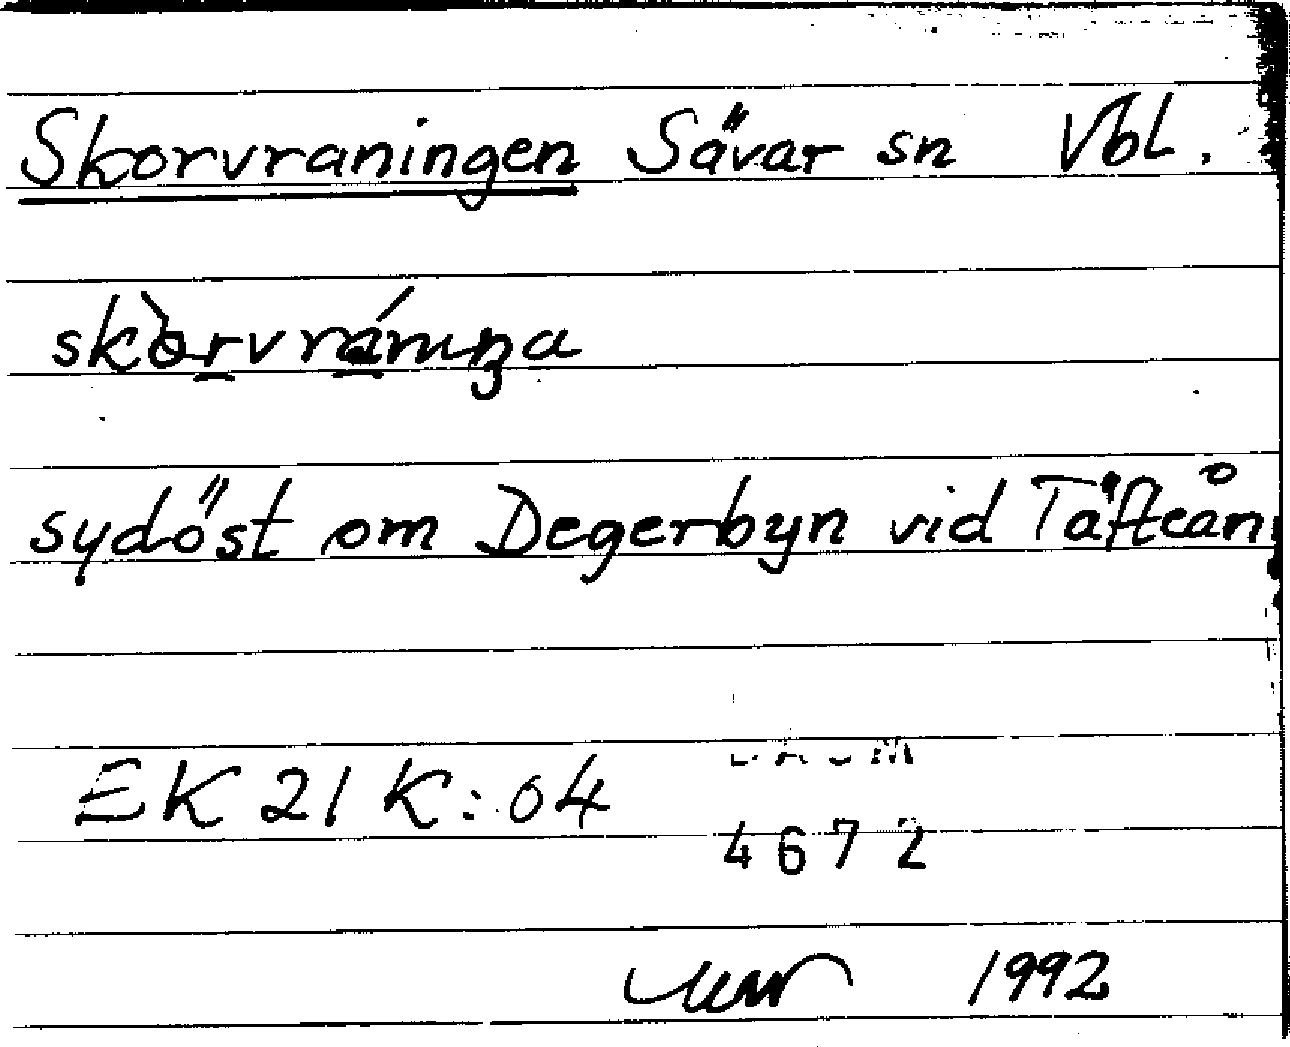 Skorvraningen Sävar sn Vbl.
sydöst om Degerbyn vid Täfteån
EK 21 K:04
4672
1992